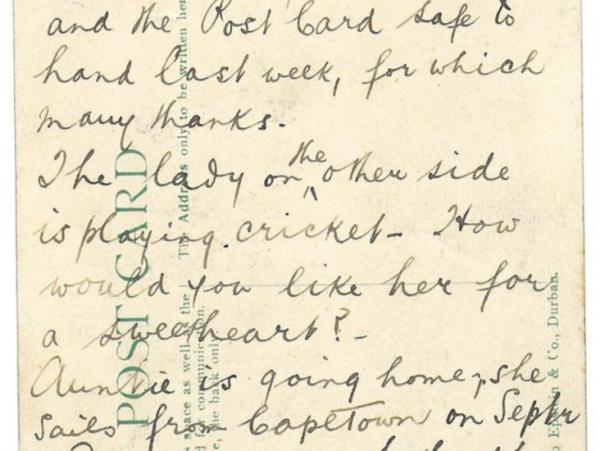 and the Post Card safe to
hand last week, for which
many thanks.
The lady on the other side
is playing cricket - How
would you like her for
a sweetheart? -
Auntie is going home, she
sails from Capetown on Septr
POST CARD
space as well as the
The Address only to be written her
for communication.
the back only
& Co., Durban.